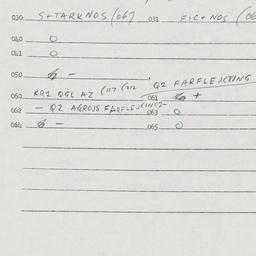 030 S+TARKNOS/067 031 FIC+NOS (06
040 O
041 O
050 6 -
060 KR1 QGL AZ (117 (212 Q2 FARFLEJCTING
061 6 +
062 - Q2 AGROSS FARFLEJCINGS-
063 O
064 6 -
065 O